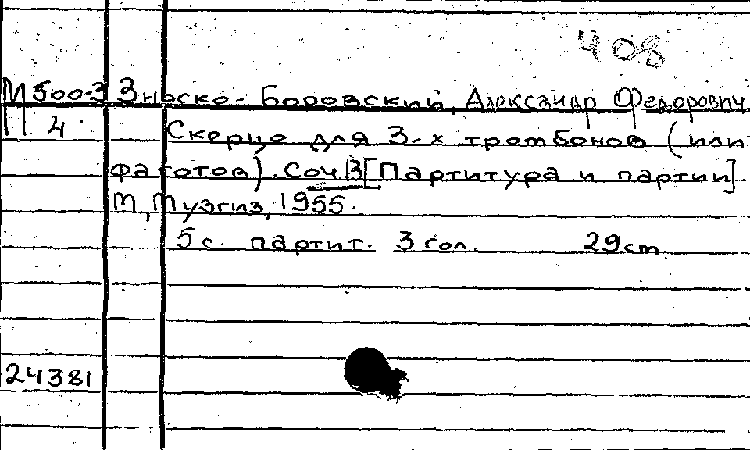 408
П 500-3 Зноско-Боровский, Александр Федорович
4 Скерцо для 3-х тромбонов (или
фаготов). Соч. 13 [Партитура и партии]
М, Музгиз, 1955.
5 с. партит. 3 гол. 29 cm
24381